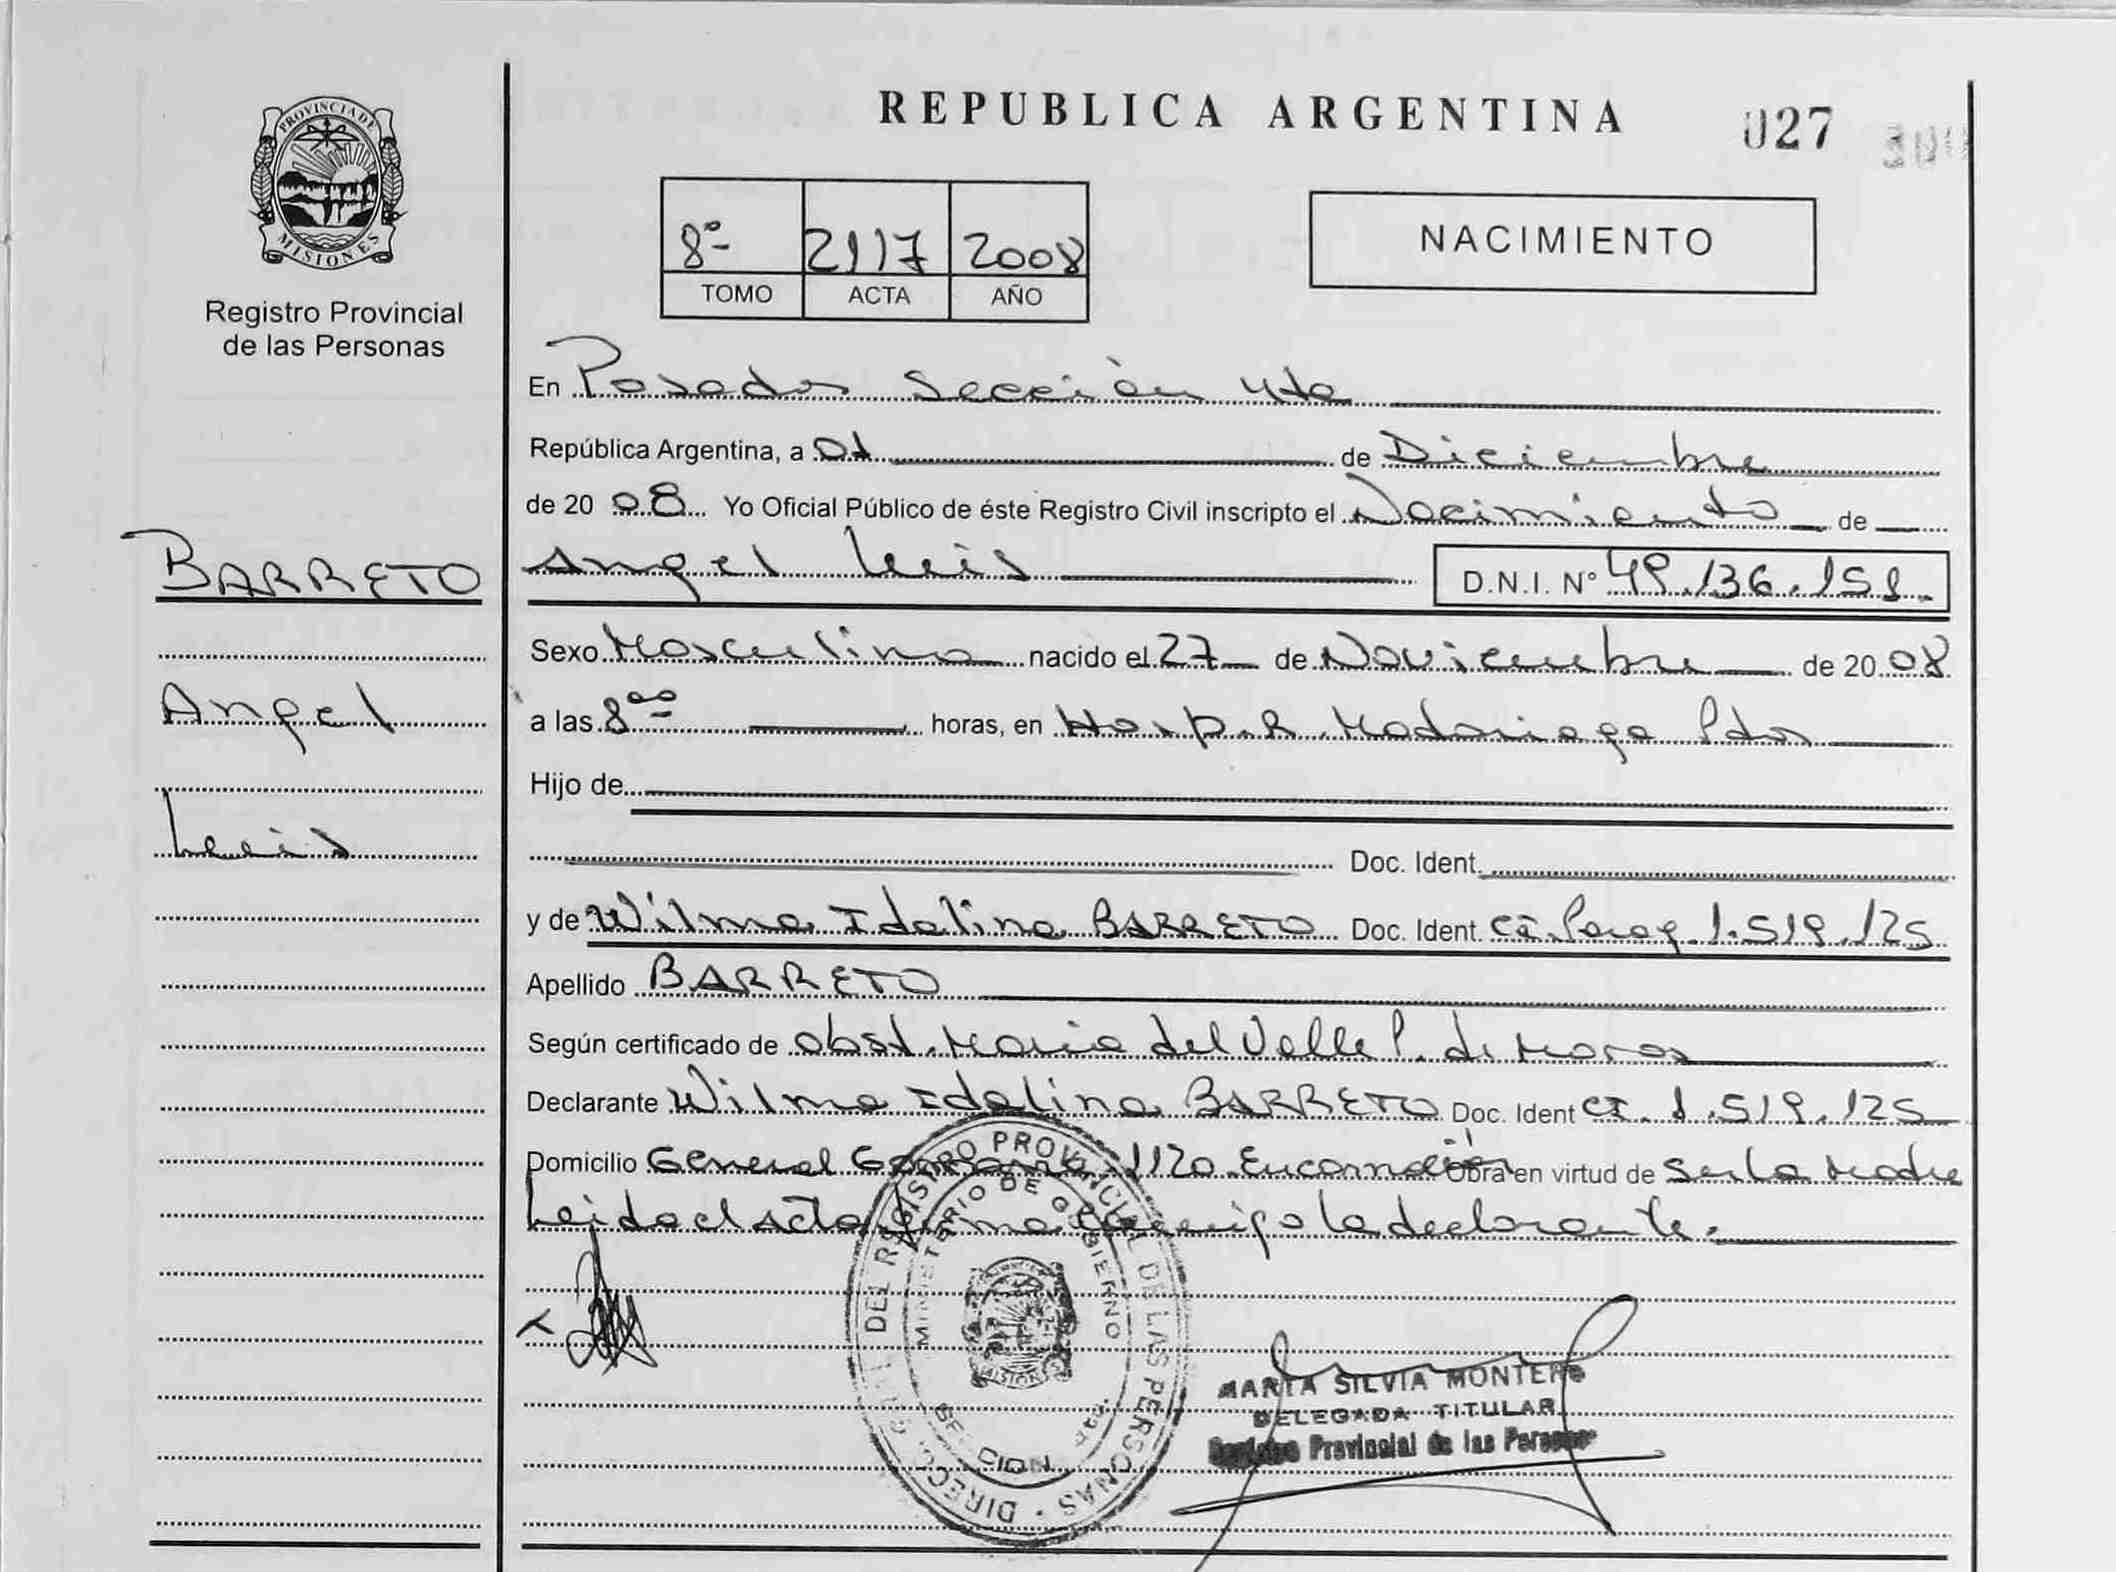 REPUBLICA ARGENTINA
027
PROVINCIA DE MISIONES
Registro Provincial
de las Personas
8º 2117 2008
TOMO ACTA AÑO
NACIMIENTO
En Posadas Sección 4ta
República Argentina, a 01 de Diciembre
de 20 08 Yo Oficial Público de éste Registro Civil inscripto el Nacimiento de
BARRETO
Angel Luis D.N.I. Nº 49.136.151.
Sexo Masculino nacido el 27 de Noviembre de 20 08
Angel
a las 8ºº horas, en Hosp. R. Madariaga Pdas
Hijo de
Luis
Doc. Ident.
y de Wilma Idalina BARRETO Doc. Ident. CI. Parag. 1.519.125
Apellido BARRETO
Según certificado de obst. Maria del Valle P. de Moras
Declarante Wilma Idalina BARRETO Doc. Ident CI. 1.519.125
Domicilio General 1120 Encarnación Obra en virtud de Ser la Madre
Leida el acta firma conmigo la declarante.
DIRECCION DEL REGISTRO PROVINCIAL DE LAS PERSONAS
MINISTERIO DE GOBIERNO
MISIONES
SECCION 4ta.
MARIA SILVIA MONTERO
DELEGADA TITULAR
Registro Provincial de las Personas